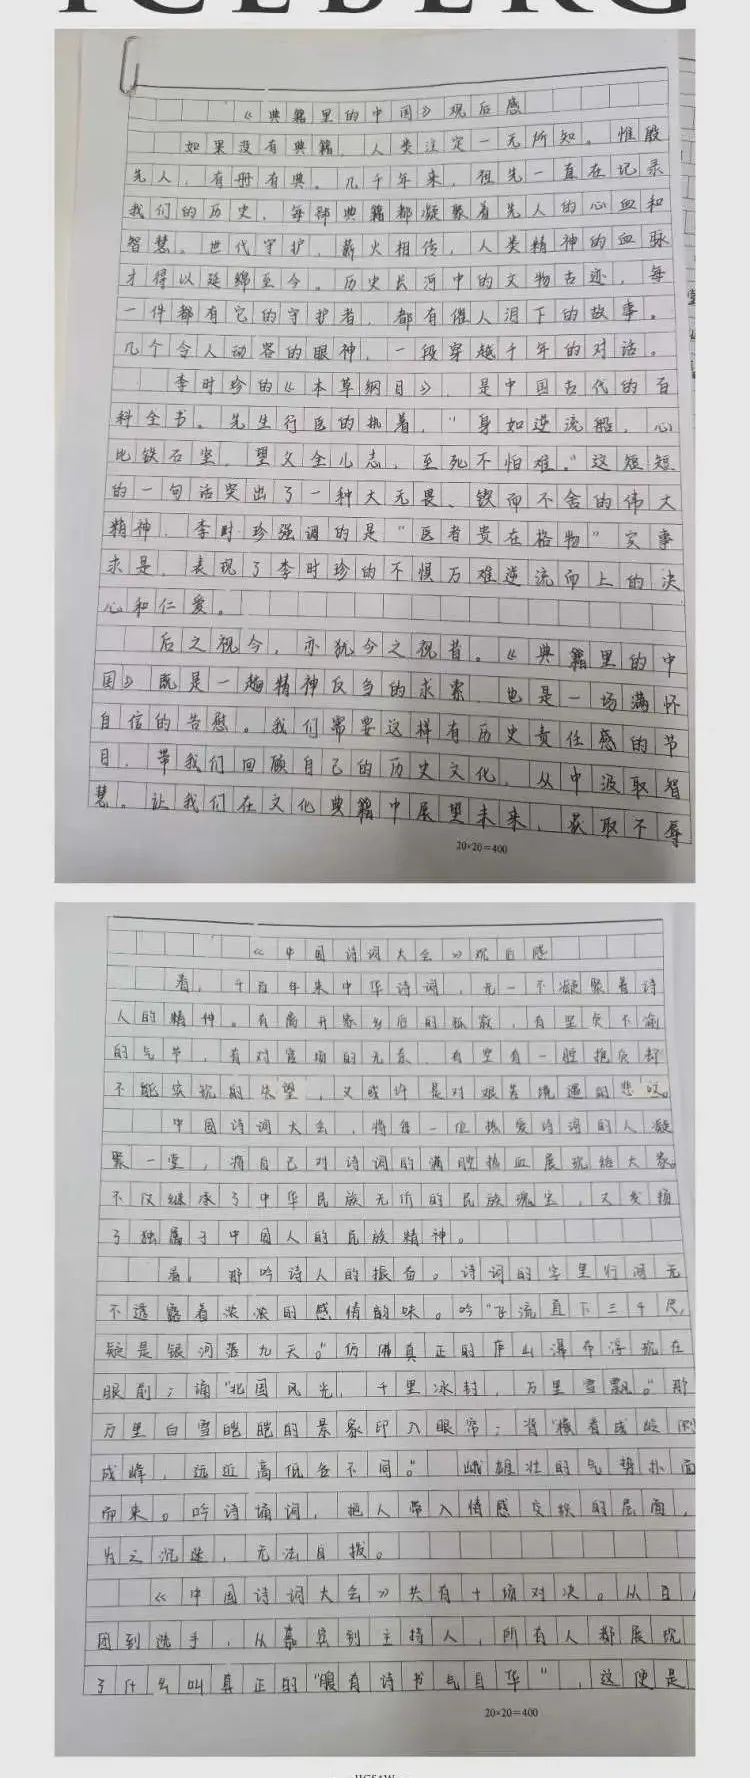 ICEBERG
《典籍里的中国》观后感
如果没有典籍，人类注定一无所知。惟殷
先人，有册有典。几千年来，祖先一直在记录
我们的历史，每部典籍都凝聚着先人的心血和
智慧。世代守护，薪火相传，人类精神的血脉
才得以延绵至今。历史长河中的文物古迹，每
一件都有它的守护者，都有催人泪下的故事。
几个令人动容的眼神，一段穿越千年的对话。
李时珍的《本草纲目》，是中国古代的百
科全书。先生行医的执着，"身如逆流船，心
比铁石坚，望父全儿志，至死不怕难。"这短短
的一句话突出了一种大无畏、锲而不舍的伟大
精神，李时珍强调的是"医者贵在格物"实事
求是，表现了李时珍的不惧万难逆流而上的决
心和仁爱。
后之视今，亦犹今之视昔。《典籍里的中
国》既是一趟精神反刍的求索，也是一场满怀
自信的告慰。我们需要这样有历史责任感的节
目，带我们回顾自己的历史文化，从中汲取智
慧。让我们在文化典籍中展望未来，获取不辱
20×20=400
《中国诗词大会》观后感
看，千百年来中华诗词，无一不凝聚着诗
人的精神。有离开家乡后的孤寂，有坚贞不渝
的气节，有对官场的无奈，有空有一腔抱负却
不能实现的失望，又或许是对艰苦境遇的悲叹。
中国诗词大会，将每一位热爱诗词的人凝
聚一堂，将自己对诗词的满腔热血展现给大家。
不仅继承了中华民族无价的民族瑰宝，又发扬
了独属于中国人的民族精神。
看，那吟诗人的振奋。诗词的字里行间无
不透露着浓浓的感情韵味。吟"飞流直下三千尺，
疑是银河落九天。"仿佛真正的庐山瀑布浮现在
眼前；诵"北国风光，千里冰封，万里雪飘。"那
万里白雪皑皑的景象印入眼帘；背"横看成岭侧
成峰，远近高低各不同。"巍雄壮的气势扑面
而来。吟诗诵词，把人带入情感交织的层面，
为之沉迷，无法自拔。
《中国诗词大会》共有十场对决。从百人
团到选手，从嘉宾到主持人，所有人都展现
了什么叫真正的"腹有诗书气自华"，这便是
20×20=400